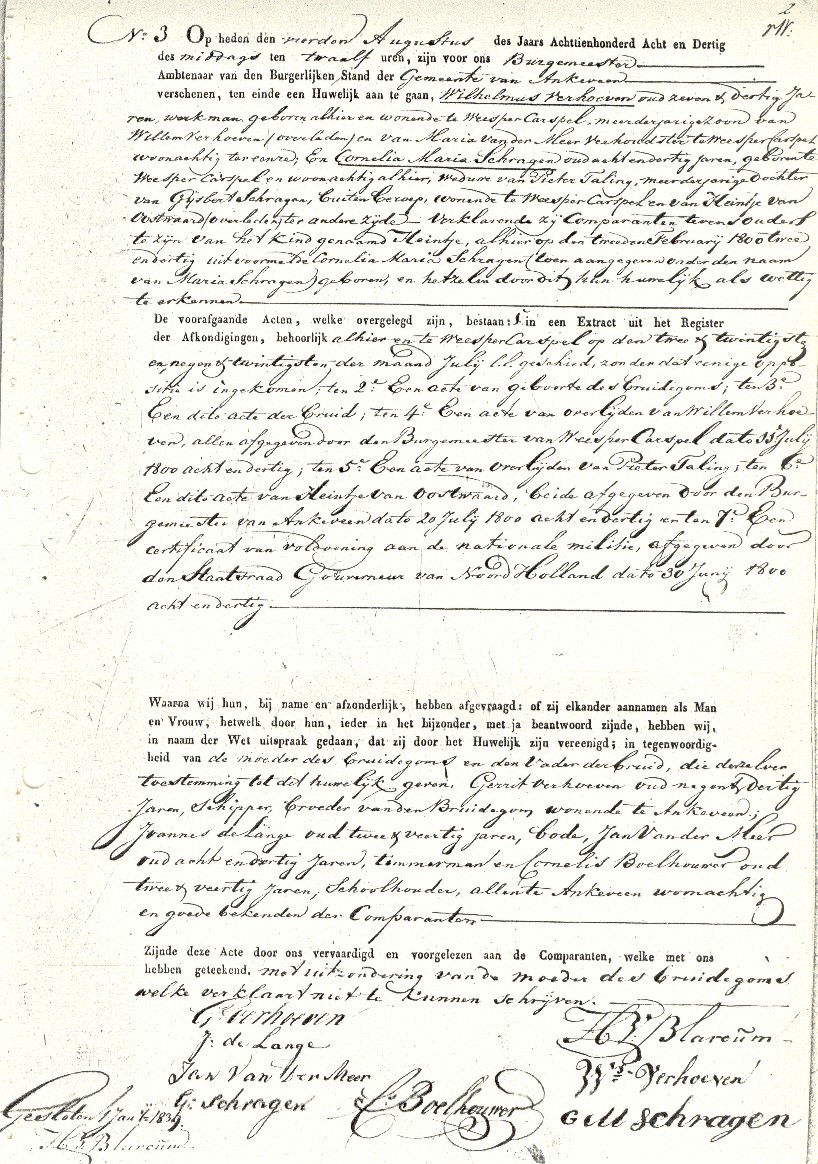 2
No. 3 Op heden den vierden Augustus des Jaars Achttienhonderd Acht en Dertig
des middags ten twaalf uren, zijn voor ons Burgemeester
Ambtenaar van den Burgerlijken Stand der Gemeente van Ankeveen
verschenen, ten einde een Huwelijk aan te gaan, Wilhelmus Verhoeven oud zeven & dertig Ja-
ren, werkman, geboren alhier en wonende te Weesper Carspel, meerderjarige zoon van
Willem Verhoeven (overleden) en van Maria van der Meer Veehoudster te Weesper Carspel
woonachtig ter eenre; En Cornelia Maria Schragen oud acht en dertig jaren, geboren te
Weesper Carspel en woonachtig alhier, weduwe van Pieter Taling, meerderjarige Dochter
van Gijsbert Schragen, buiten beroep, wonende te Weesper Carspel en van Heintje van
Oostwaard (overleden) ter andere zijde – Verklarende zij Comparanten tevens ouders
te zijn van het kind genaamd Heintje, alhier op den tweeden Februarij 1800 twee
en dertig uit voormelde Cornelia Maria Schragen (toen aangegeven onder den naam
van Maria Schragen) geboren, en hetzelve door dit hun huwelijk als wettig
te erkennen
De voorafgaande Acten, welke overgelegd zijn, bestaan: 1e in een Extract uit het Register
der Afkondigingen, behoorlijk alhier en te Weesper Carspel op den twee & twintigste
en negen & twintigsten der maand Julij l.l. geschied, zonder dat eenige oppo-
sitie is ingekomen; ten 2e Een acte van geboorte des Bruidegoms; ten 3e
Een dito acte der Bruid; ten 4e Een acte van overlijden van Willem Verhoe-
ven, allen afgegeven door den Burgemeester van Weesper Carspel dato 15 Julij
1800 acht en dertig; ten 5e Een acte van overlijden van Pieter Taling; ten 6e
Een dito acte van Heintje van Oostwaard, beide afgegeven door den Bur-
gemeester van Ankeveen dato 20 Julij 1800 acht en dertig en ten 7e Een
certificaat van voldoening aan de nationale militie, afgegeven door
den Staatsraad Gouverneur van Noord Holland dato 30 Junij 1800
acht en dertig
Waarna wij hun, bij name en afzonderlijk, hebben afgevraagd: of zij elkander aannamen als Man
en Vrouw, hetwelk door hun, ieder in het bijzonder, met ja beantwoord zijnde, hebben wij,
in naam der Wet uitspraak gedaan, dat zij door het Huwelijk zijn vereenigd; in tegenwoordig-
heid van de moeder des bruidegoms en den Vader der bruid, die derzelver
toestemming tot dit huwelijk geven, Gerrit Verhoeven oud negen & dertig
Jaren, Schipper, broeder van den Bruidegom wonende te Ankeveen;
Joannes de Lange oud twee & veertig jaren, bode, Jan Van der Meer
oud acht en dertig Jaren, timmerman en Cornelis Boelhouwer oud
twee & veertig Jaren, Schoolhouder, allen te Ankeveen woonachtig
en goede bekenden der Comparanten
Zijnde deze Acte door ons vervaardigd en voorgelezen aan de Comparanten, welke met ons
hebben geteekend. met uitzondering van de moeder des bruidegoms
welke verklaart niet te kunnen schrijven.
G. Verhoeven
J. de Lange
Jan Van der Meer
G. Schragen
C. Boelhouwer
Blareüm
Ws. Verhoeven
C M Schragen
Gesloten 1 Jan 1839
Blareüm